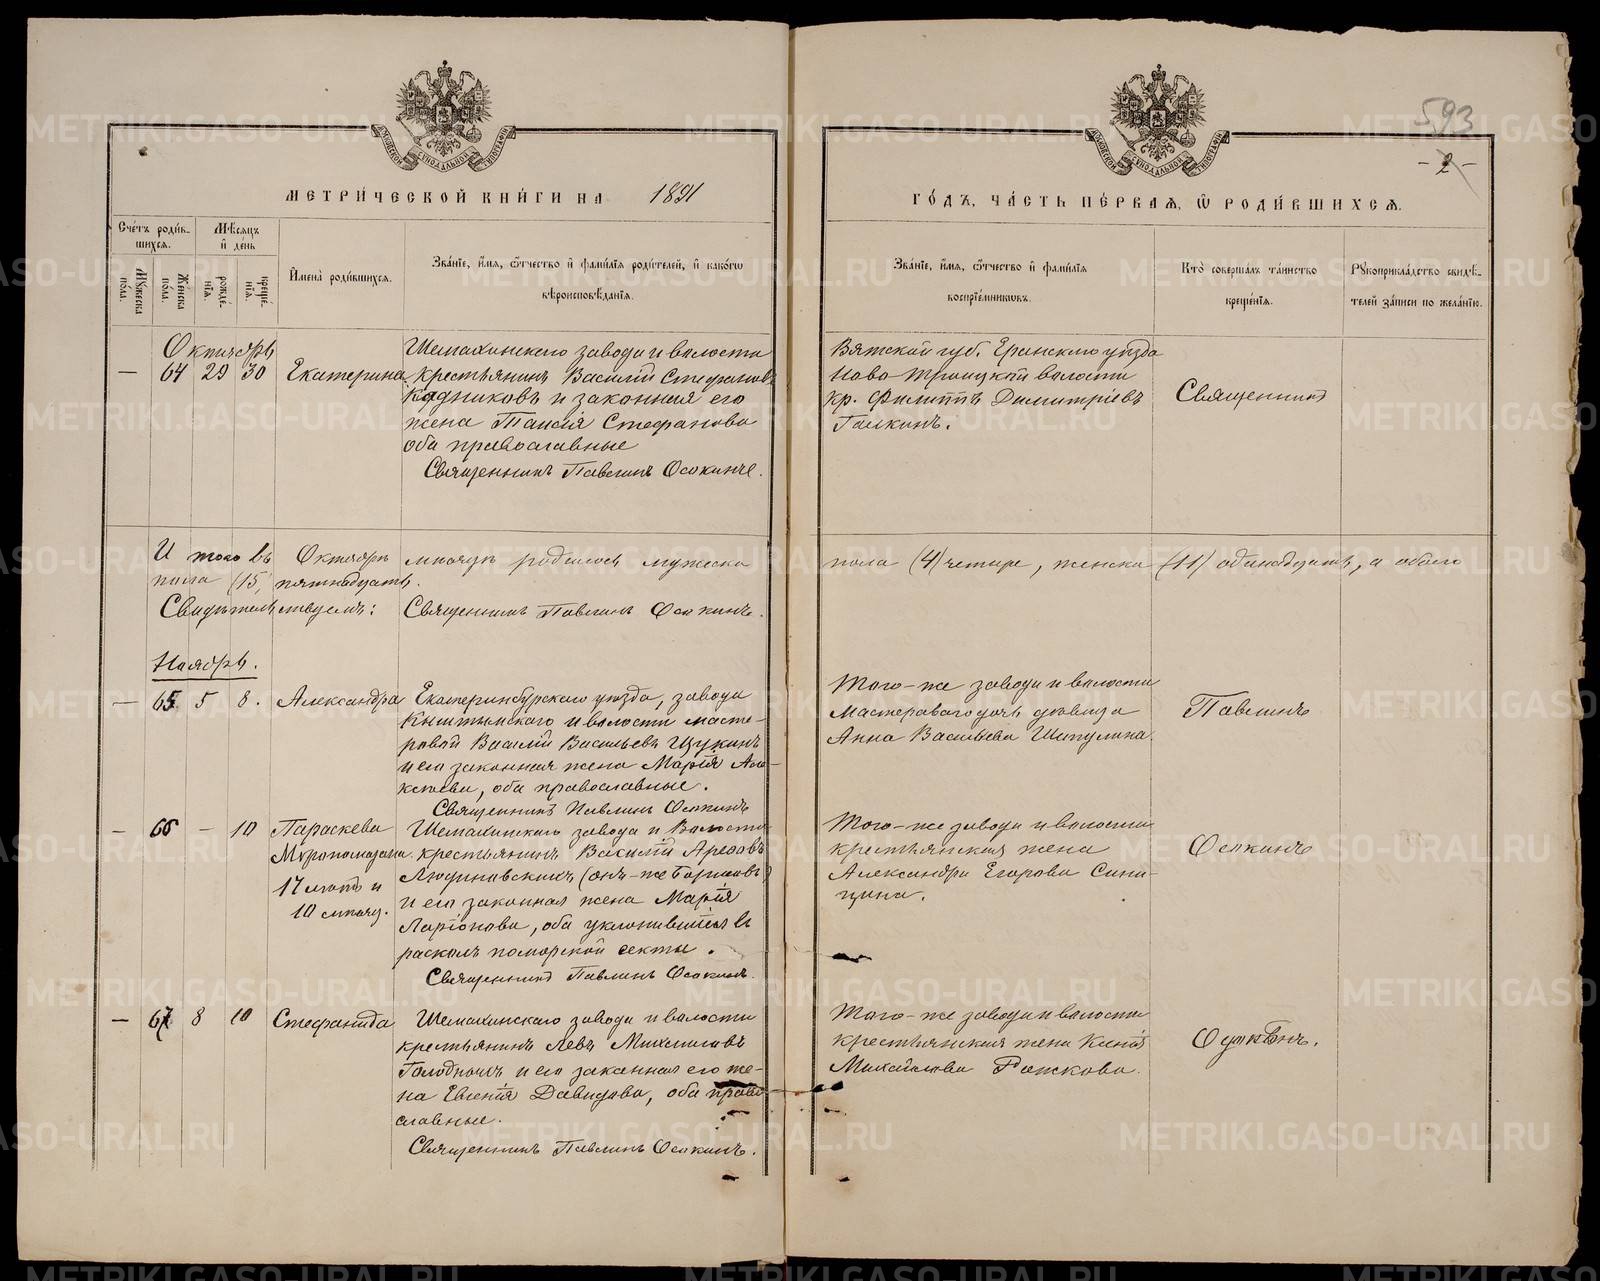 593
- 2 -
МЕТРИЧЕСКОЙ КНИГИ НА 1891
ГОДЪ, ЧАСТЬ ПЕРВАЯ, Ѡ РОДИВШИХСЯ.
Счетъ родившихся.
Мѣсяцъ и день
Имена родившихся.
Званіе, имя, отчество и фамилія родителей, и какогѡ вѣроисповѣданія.
Мужеска пола.
Женска пола.
рожденія.
крещенія.
Званіе, имя, отчество и фамилія воспріемниковъ.
Кто совершалъ таинство крещенія.
Рукоприкладство свидѣтелей записи по желанію.
Октябрь
— 64 29 30 Екатерина
Шемахинскаго завода и волости
крестьянинъ Василій Стефановъ
Кадниковъ и законная его
жена Таисія Стефанова
оба православные
Священникъ Павлинъ Осокинъ.
Вятской губ. Еранскаго уѣзда
Ново Троицкой волости
кр. Филиппъ Димитріевъ
Галкинъ.
Священникъ
И того въ Октябрѣ мѣсяцѣ родилось мужеска пола (4) четыре, женска (11) одинадцать, а обоего
пола (15) пятнадцать.
Свидѣтельствуемъ: Священникъ Павлинъ Осокинъ.
Ноябрь.
— 65 5 8. Александра
Екатеринбурскаго уѣзда, завода
Кыштымскаго и волости масте-
ровой Василій Васильевъ Щукинъ
и его законная жена Марія Але-
ксѣева, оба православные.
Священникъ Павлинъ Осокинъ
Того-же завода и волости
мастероваго дочь дѣвица
Анна Васильева Шипулина.
Павлинъ
— 66 — 10 Параскева
Мѵропомазана.
17 лѣтъ и
10 мѣсяц.
Шемахинскаго завода и Волости
крестьянинъ Василій Арефовъ
Людиновскихъ (онъ-же Горшковъ)
и его законная жена Марія
Ларіонова, оба уклонившіеся въ
расколъ поморской секты.
Священникъ Павлинъ Осокинъ.
Того-же завода и волости
крестьянская жена
Александра Егорова Сини-
цына.
Осокинъ
— 67 8 10 Стефанида
Шемахинскаго завода и волости
крестьянинъ Левъ Михаиловъ
и его законная его же-
на Евгенія Давидова, оба право-
славные.
Священникъ Павлинъ Осокинъ.
Того-же завода и волости
крестьянская жена Ксенія
Михайлова Рожкова.
Осокинъ.
METRIKI.GASO-URAL.RU